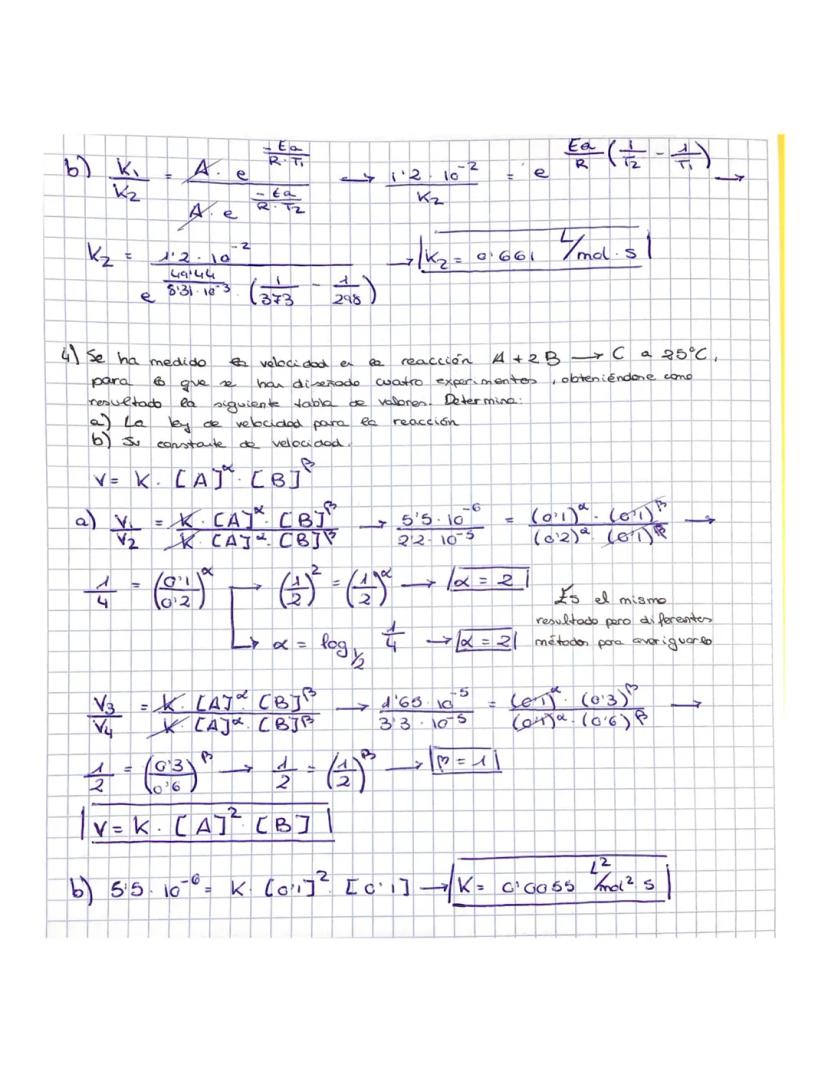 b) K₁/K₂ = A · e^(-Ea/R·T₁) / A · e^(-Ea/R·T₂) → 1'2 · 10⁻²/K₂ = e^(Ea/R (1/T₂ - 1/T₁)) →
K₂ = 1'2 · 10⁻² / e^(49'44/8'31·10⁻³ · (1/373 - 1/298)) → K₂ = 0'661 L/mol · s
4) Se ha medido la velocidad en la reacción A + 2B → C a 25°C,
para lo que se han diseñado cuatro experimentos, obteniéndose como
resultado la siguiente tabla de valores. Determina:
a) La ley de velocidad para la reacción
b) Su constante de velocidad.
V = K · [A]^α · [B]^β
a) V₁/V₂ = K · [A]^α · [B]^β / K · [A]^α · [B]^β → 5'5 · 10⁻⁶ / 2'2 · 10⁻⁵ = (0'1)^α · (0'1)^β / (0'2)^α · (0'1)^β →
1/4 = (0'1/0'2)^α → (1/2)² = (1/2)^α → α = 2
→ α = log_1/2 1/4 → α = 2
Es el mismo
resultado pero diferentes
métodos para averiguarlo
V₃/V₄ = K · [A]^α · [B]^β / K · [A]^α · [B]^β → 1'65 · 10⁻⁵ / 3'3 · 10⁻⁵ = (0'1)^α · (0'3)^β / (0'1)^α · (0'6)^β →
1/2 = (0'3/0'6)^β → 1/2 = (1/2)^β → β = 1
V = K · [A]² · [B]
b) 5'5 · 10⁻⁶ = K · [0'1]² · [0'1] → K = 0'0055 L²/mol² s